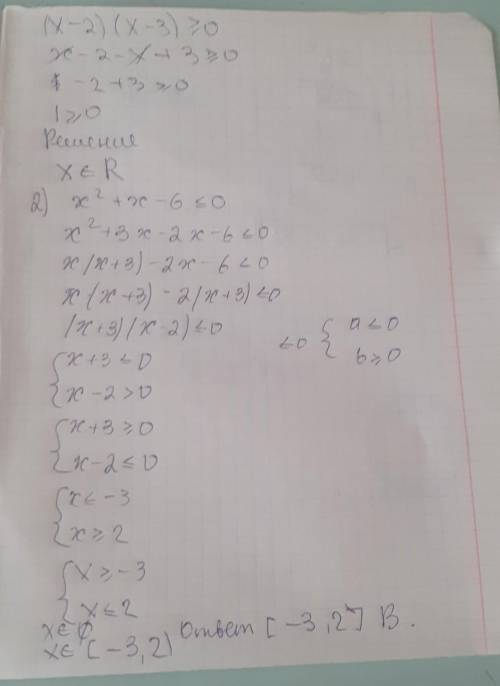 (x-2) (x-3) ≥ 0
x-2-x+3 ≥ 0
-2+3 ≥ 0
1 ≥ 0
Решение
x ∈ R
2) x² + x - 6 ≤ 0
x² + 3x - 2x - 6 ≤ 0
x(x+3) - 2x - 6 ≤ 0
x(x+3) - 2(x+3) ≤ 0
(x+3)(x-2) ≤ 0
≤0 { a ≤ 0
b ≥ 0
{ x+3 ≤ 0
x-2 > 0
{ x+3 ≥ 0
x-2 ≤ 0
{ x ≤ -3
x ≥ 2
{ x ≥ -3
x ≤ 2
x ∈ ∅
x ∈ [-3, 2) Ответ [-3, 2] B.